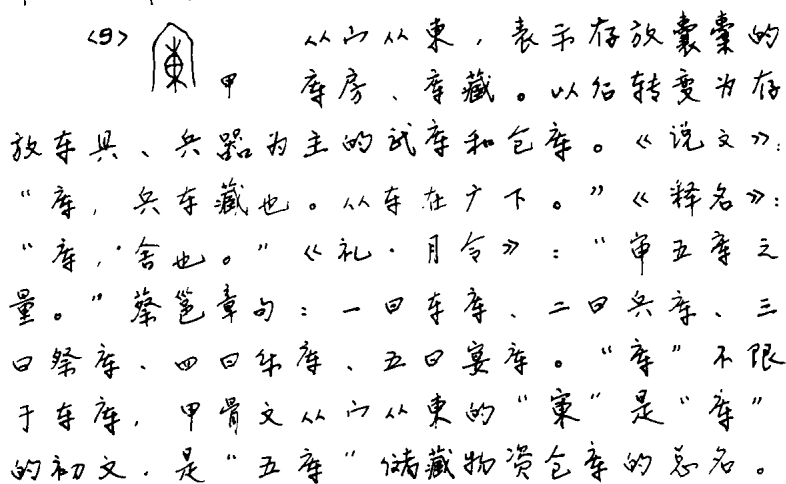 <9> 甲 从宀从東，表示存放囊橐的
库房、库藏。以后转变为存
放车具、兵器为主的武库和仓库。《说文》：
“库，兵车藏也。从车在广下。”《释名》：
“库，舍也。”《礼·月令》：“审五库之
量。”蔡邕章句：一曰车库、二曰兵库、三
曰祭库、四曰乐库、五曰宴库。“库”不限
于车库，甲骨文从宀从東的“㯥”是“库”
的初文，是“五库”储藏物资仓库的总名。